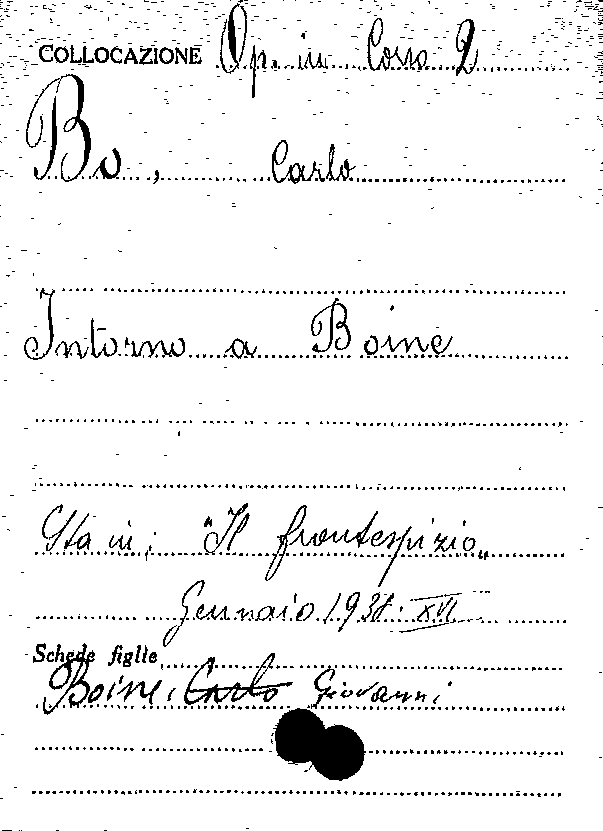 COLLOCAZIONE Op. in Corso 2
Bo, Carlo
Intorno a Boine
Sta in: "Il frontespizio„
Gennaio 1938. XVI
Schede figlie
Boine, Carlo Giovanni